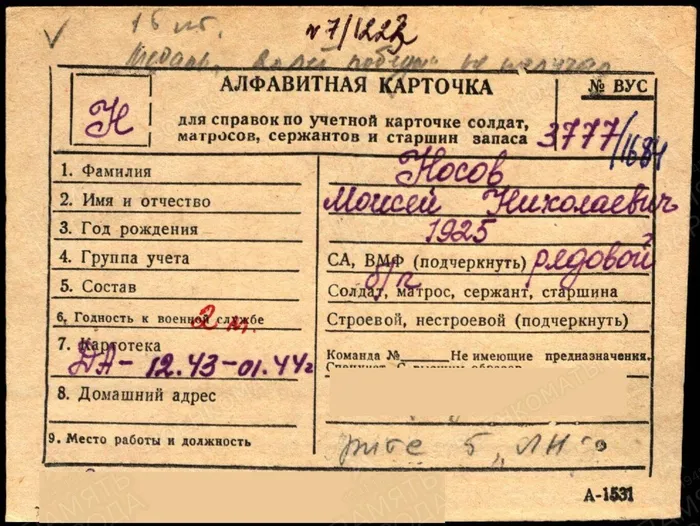 15 лет
№ 7/1223
Медаль, за победу не получал
АЛФАВИТНАЯ КАРТОЧКА
№ ВУС
Н
для справок по учетной карточке солдат,
матросов, сержантов и старшин запаса
3777/1684
1. Фамилия
Носов
2. Имя и отчество
Моисей Николаевич
3. Год рождения
1925
4. Группа учета
СА, ВМФ (подчеркнуть) рядовой
5. Состав
б/п
Солдат, матрос, сержант, старшина
6. Годность к военной службе
Строевой, нестроевой (подчеркнуть)
7. Картотека
ДА - 12.43-01.44г
Команда № Не имеющие предназначения.
8. Домашний адрес
9. Место работы и должность
А-1531